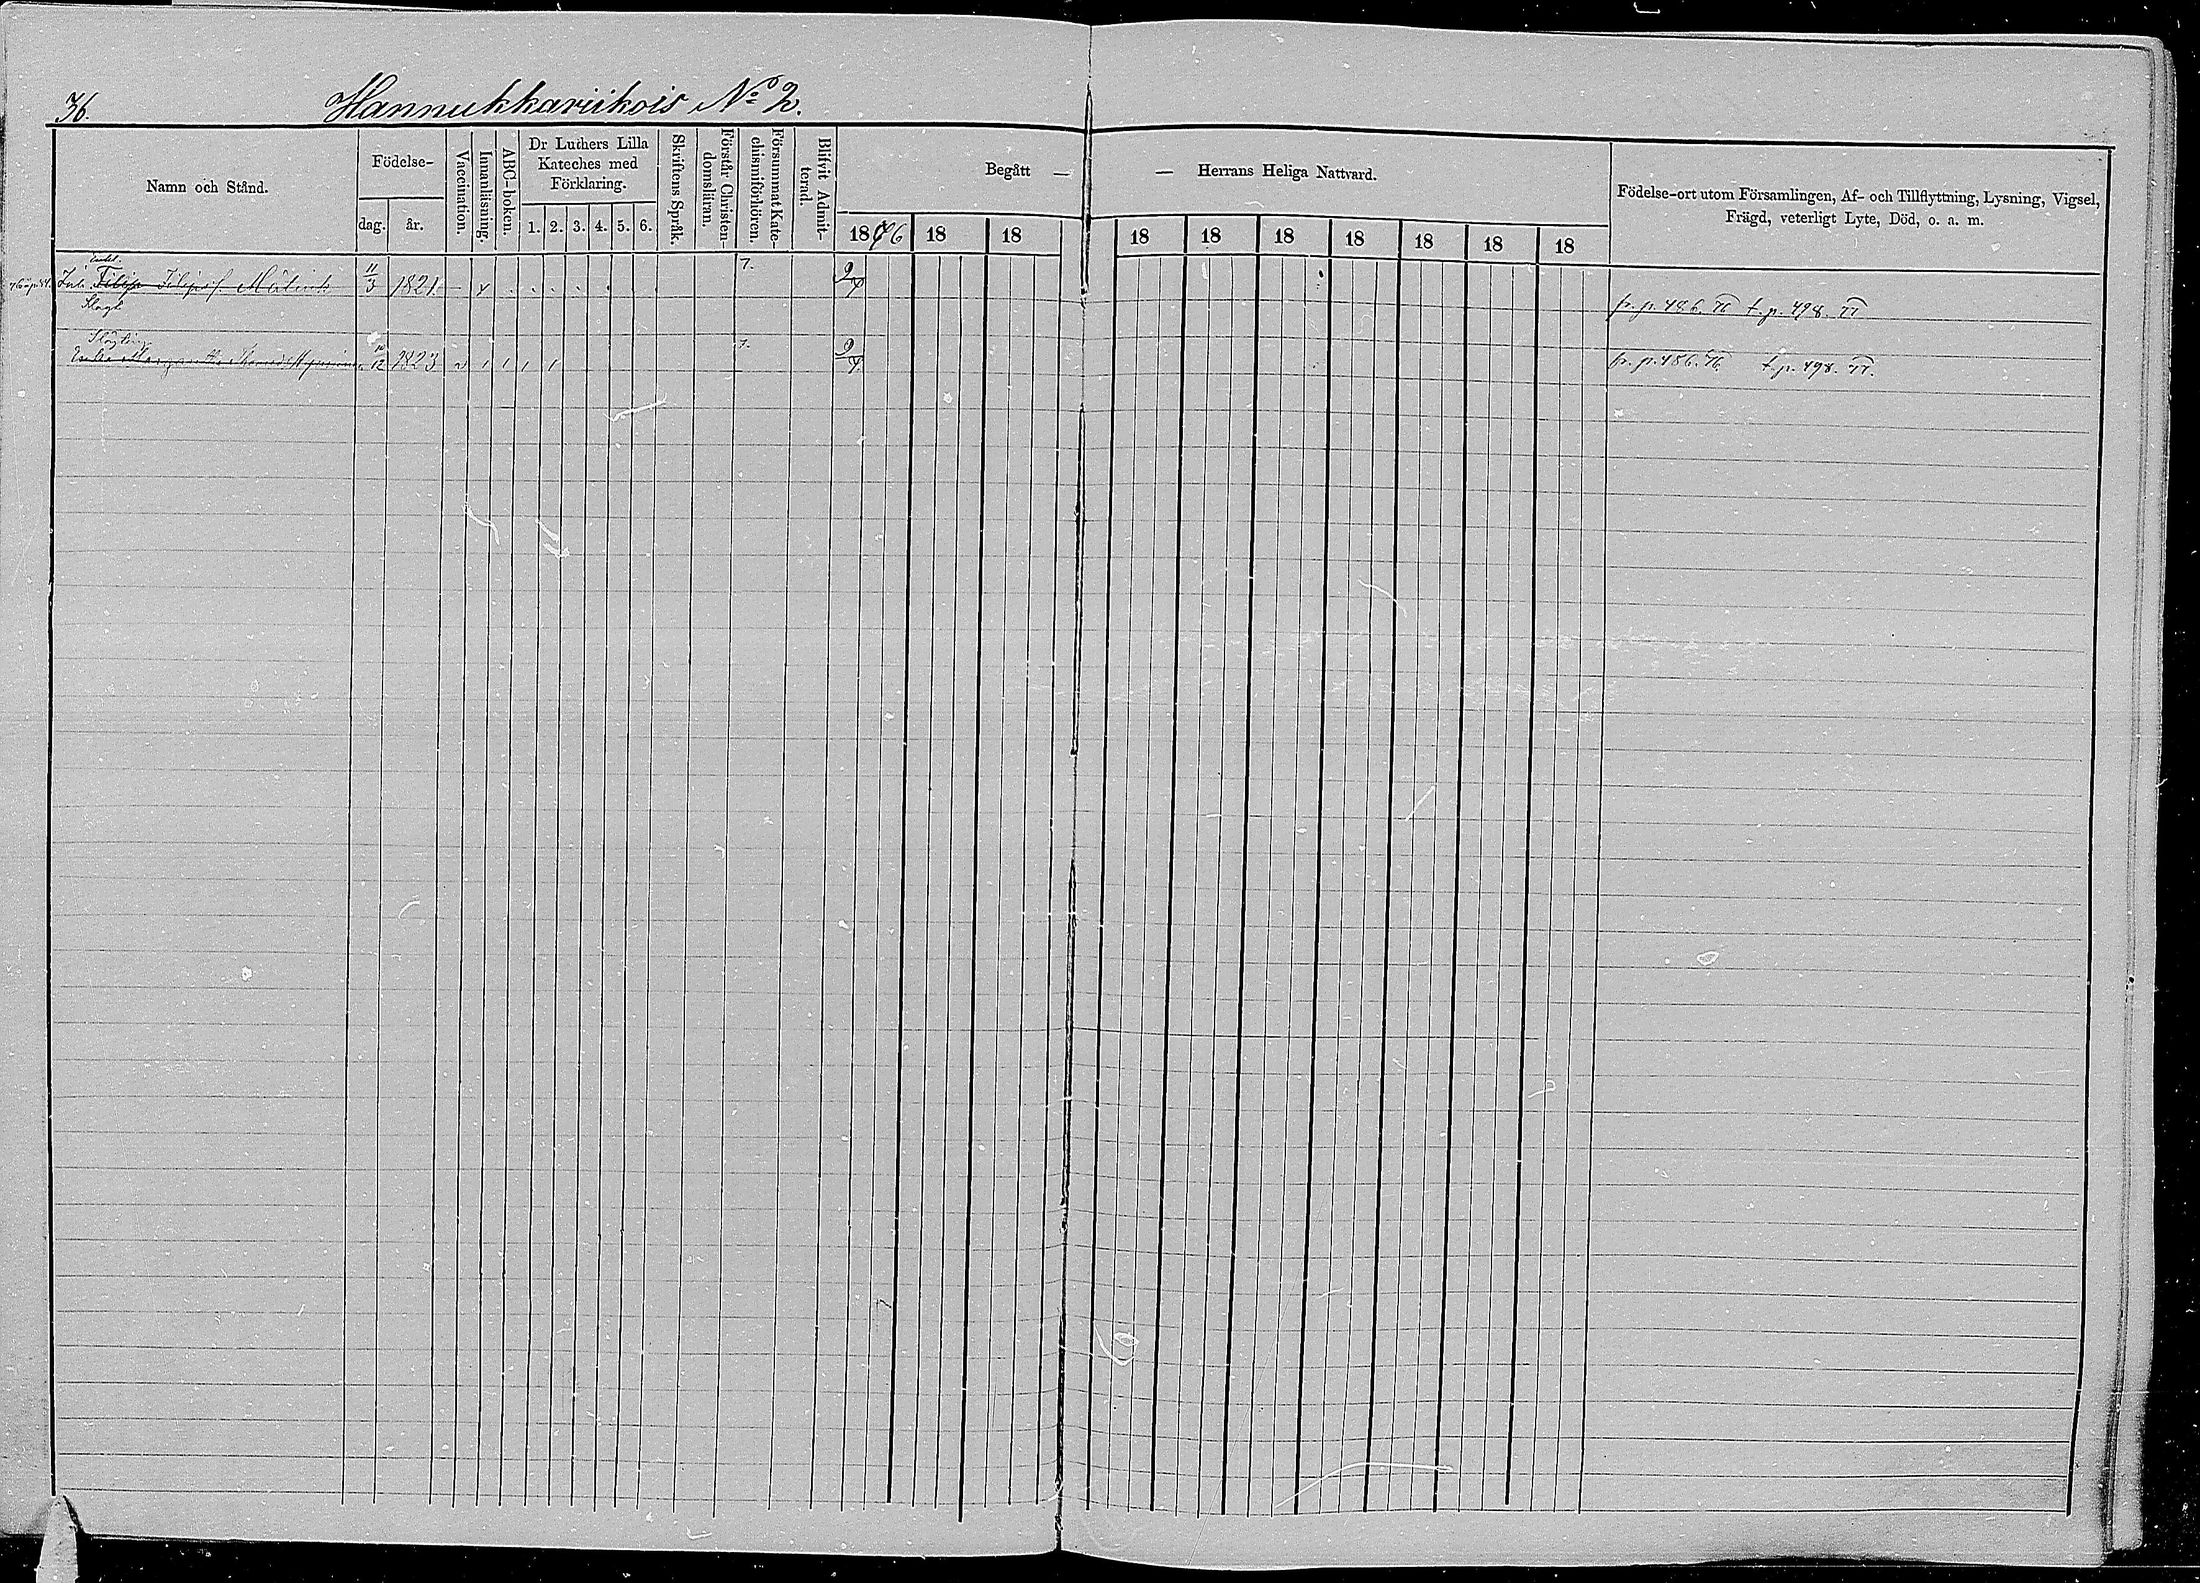 36.
Hannukkariikois No 2.
Namn och Stånd.
Födelse-
dag.
år.
Vaccination.
Innanläsning.
ABC-boken.
Dr Luthers Lilla
Kateches med
Förklaring.
1. 2. 3. 4. 5. 6.
Skriftens Språk.
Förstår Christen-
domsläran.
Försummat Kate-
chismiförhören.
Blifvit Admit-
terad.
Begått —
— Herrans Heliga Nattvard.
1876 18 18 18 18 18 18 18 18 18
Födelse-ort utom Församlingen, Af- och Tillflyttning, Lysning, Vigsel,
Frägd, veterligt Lyte, Död, o. a. m.
Filip Filipsf 11/3 1821 x 7. 9/7 fr. p. 486. 76 t. p. 498. 77
10/12 1823 7. 9/7 fr. p. 486. 76 t. p. 498. 77.